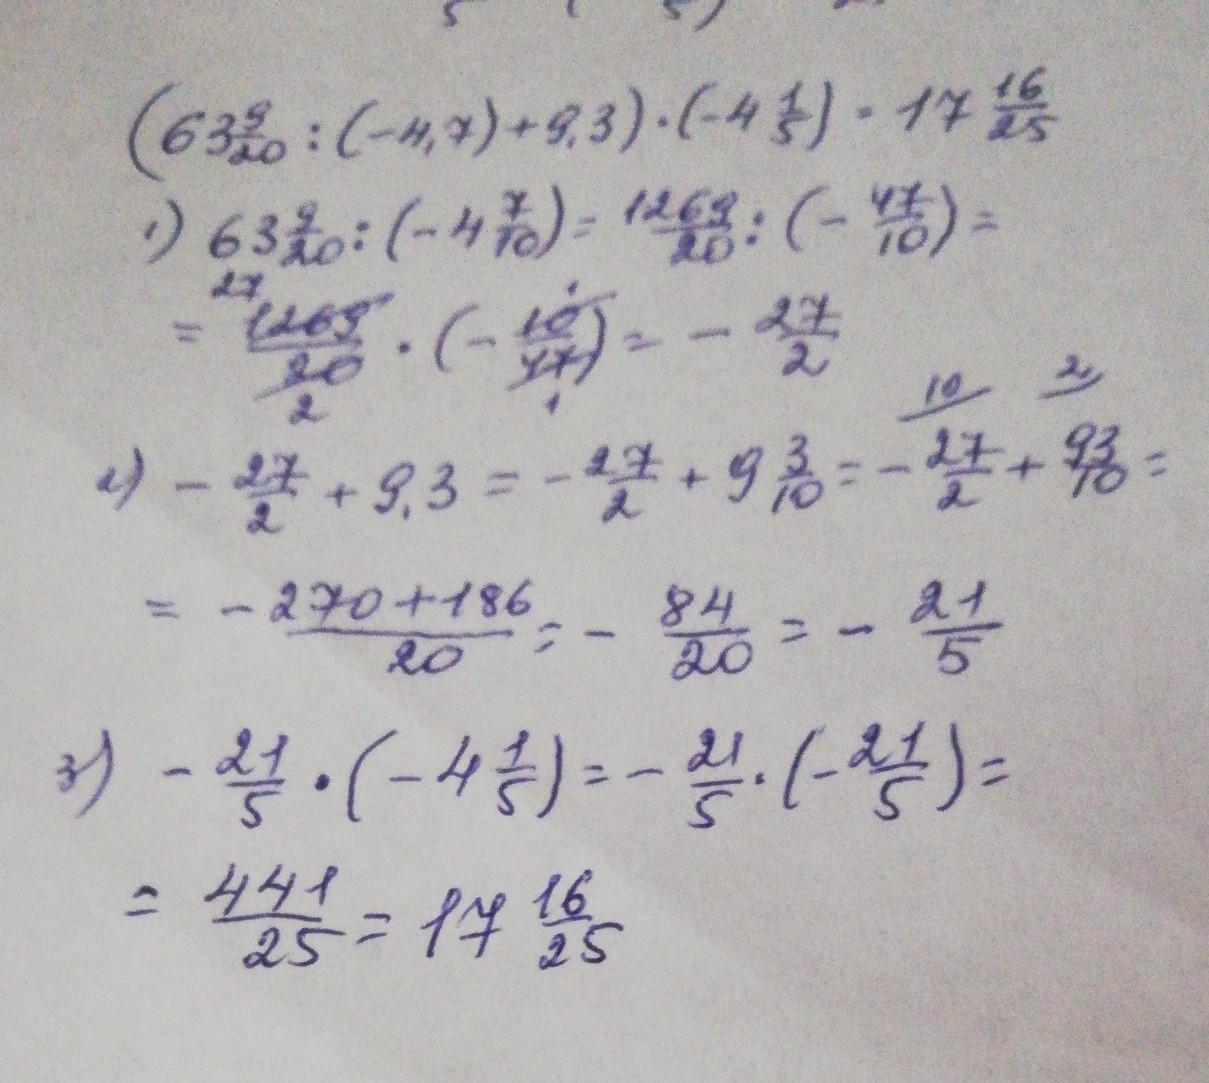 5 ( 5)
(63 9/20 : (-4,7) + 9,3) · (-4 1/5) = 17 16/25
1) 63 9/20 : (-4 7/10) = 1269/20 : (- 47/10) =
27 1
= 1269/20 · (- 10/47) = - 27/2
2 1
10 2
2) - 27/2 + 9,3 = - 27/2 + 9 3/10 = - 27/2 + 93/10 =
= - 270+186/20 = - 84/20 = - 21/5
3) - 21/5 · (-4 1/5) = - 21/5 · (- 21/5) =
= 441/25 = 17 16/25